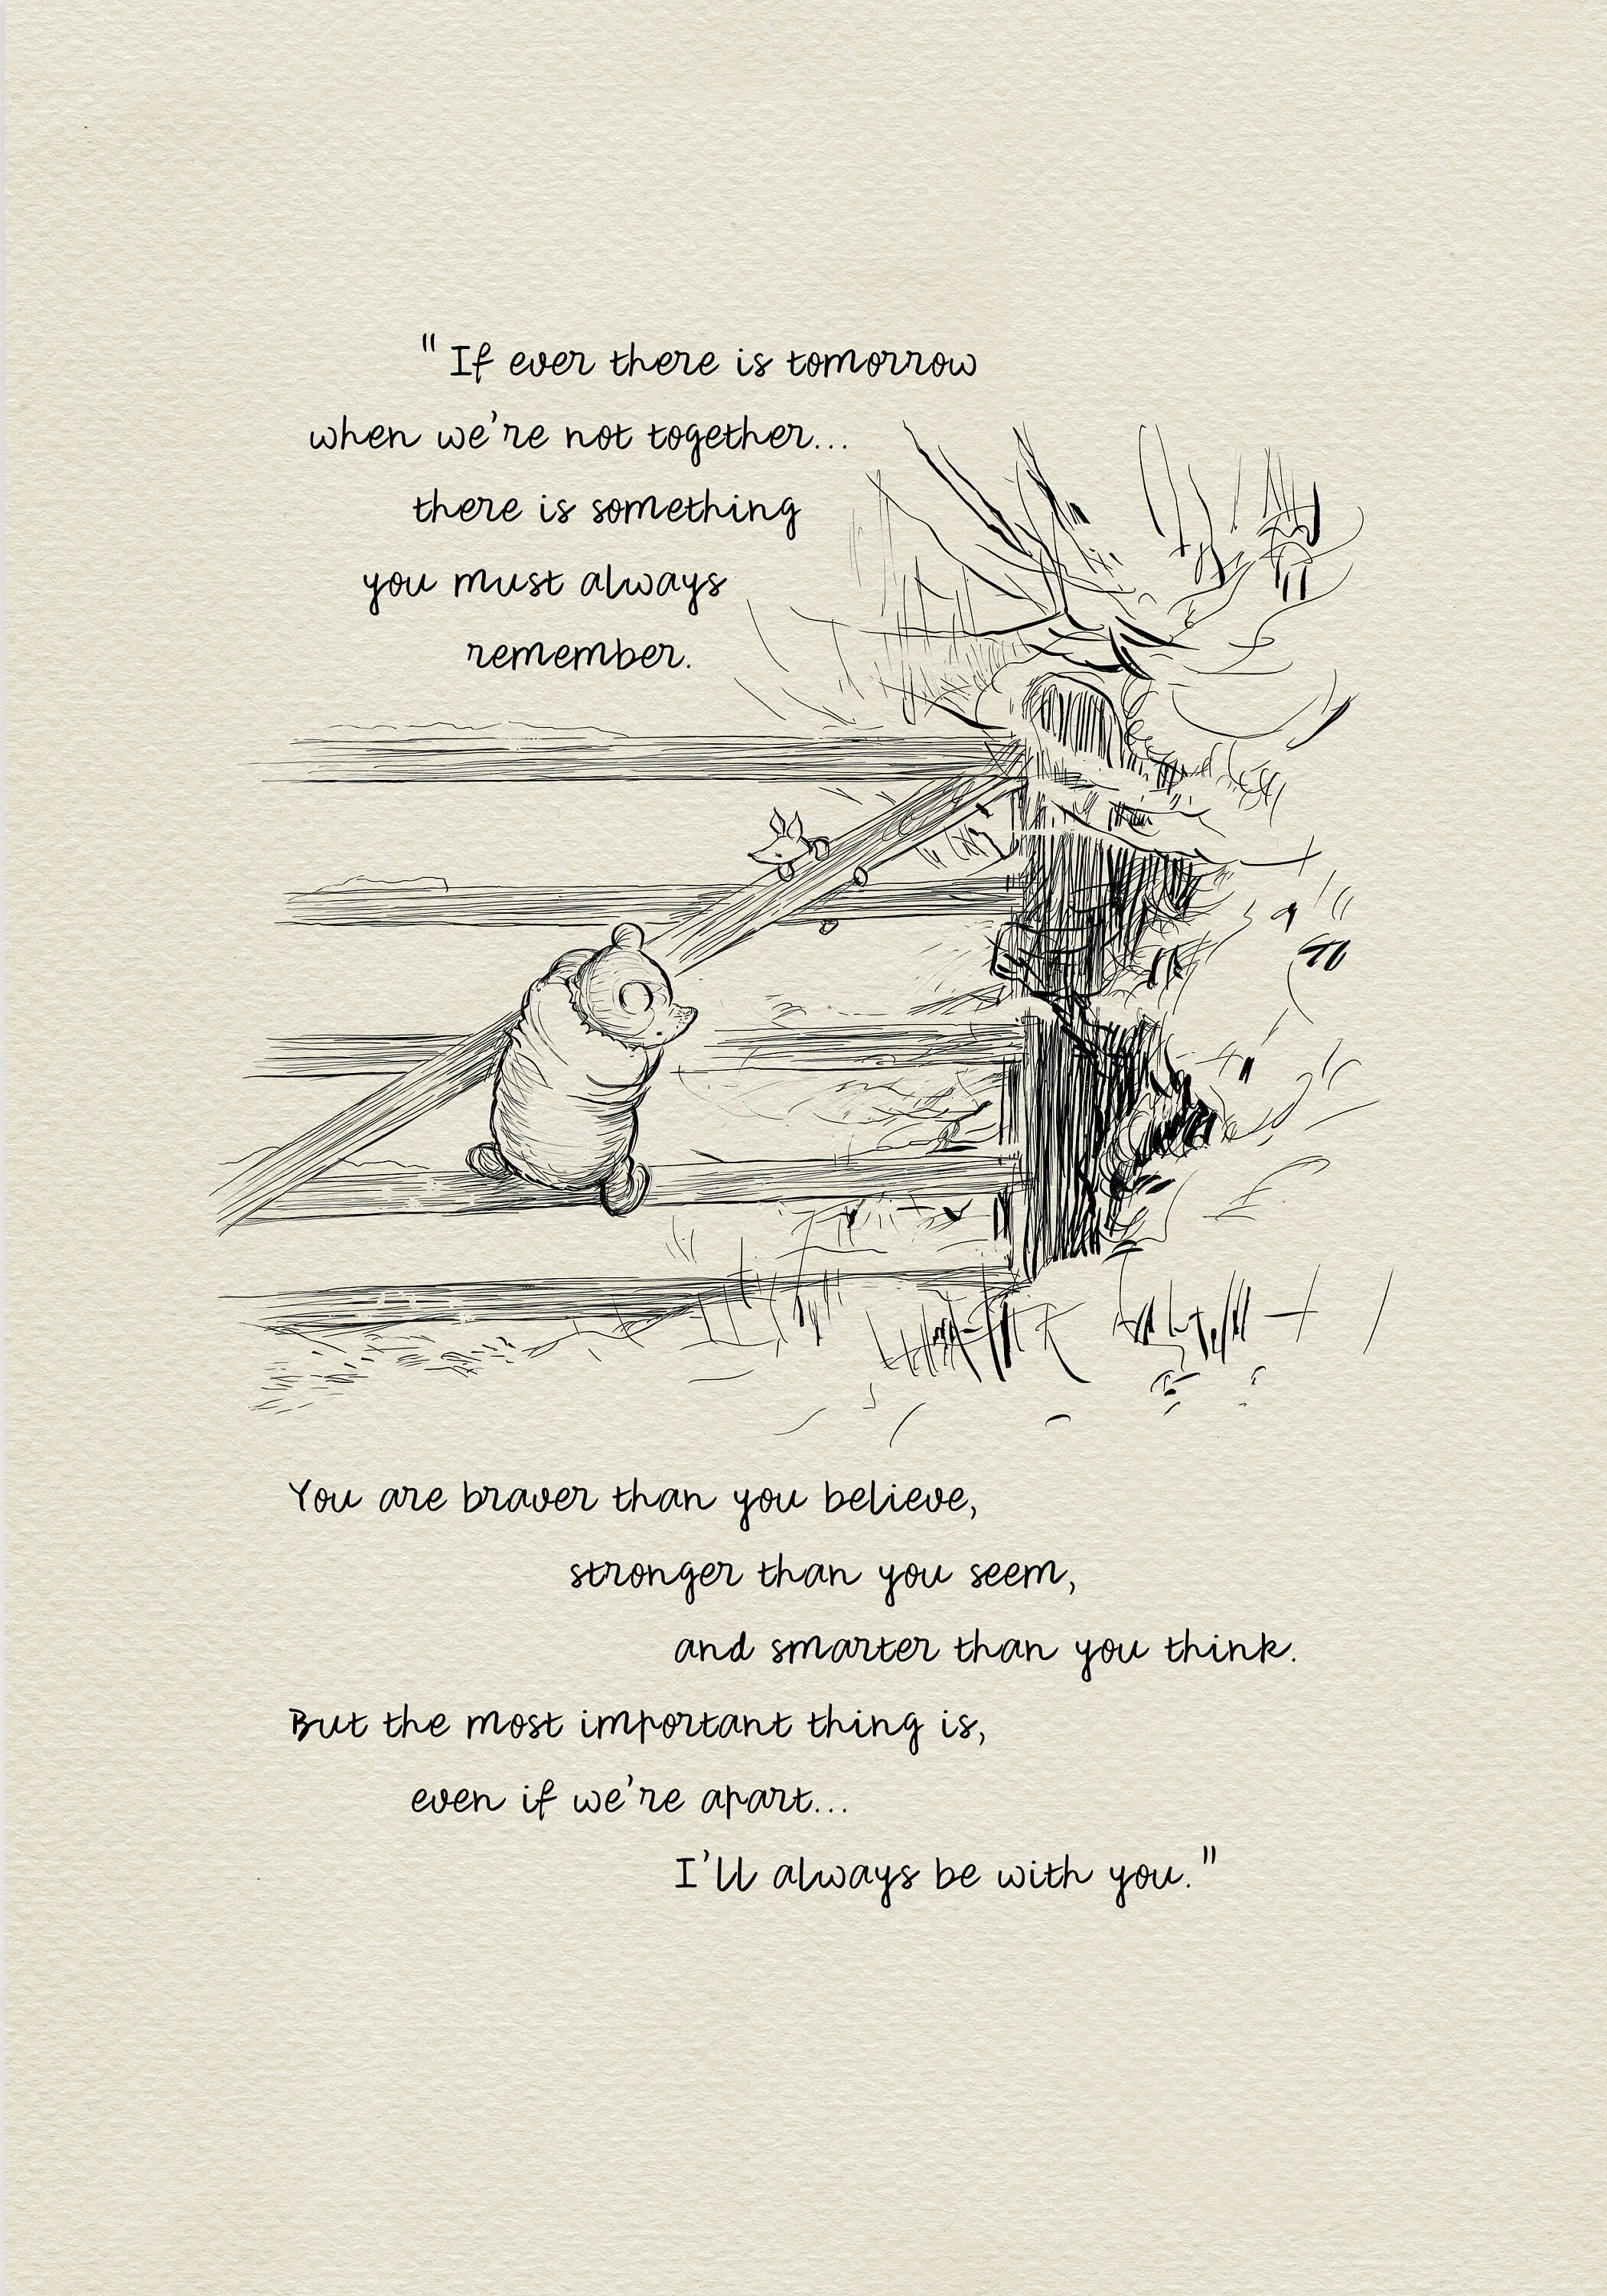 "If ever there is tomorrow
when we're not together...
there is something
you must always
remember.
You are braver than you believe,
stronger than you seem,
and smarter than you think.
But the most important thing is,
even if we're apart...
I'll always be with you."